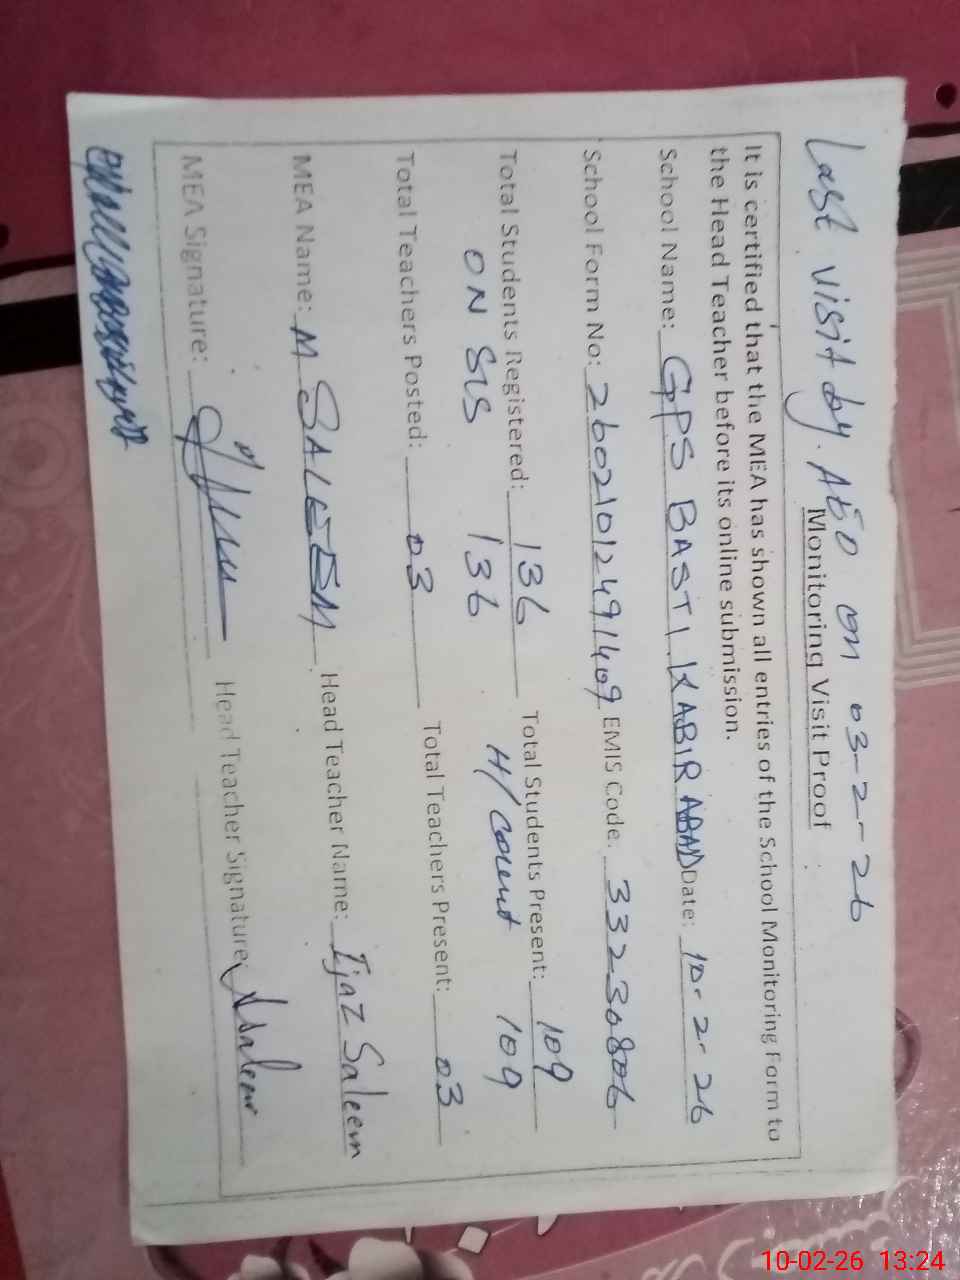 Last visit by. AEO on 03-2-26
Monitoring Visit Proof
It is certified that the MEA has shown all entries of the School Monitoring Form to
the Head Teacher before its online submission.
School Name: GPS BASTI KABIR ABAD Date: 10-2-26
School Form No: 26021012491409 EMIS Code. 33230806
Total Students Registered: 136 Total Students Present: 109
ON SIS 136 H/Count 109
Total Teachers Posted: 03 Total Teachers Present: 03
MEA Name: M SALEEM Head Teacher Name: Ijaz Saleem
MEA Signature: Head Teacher Signature:
10-02-26 13:24